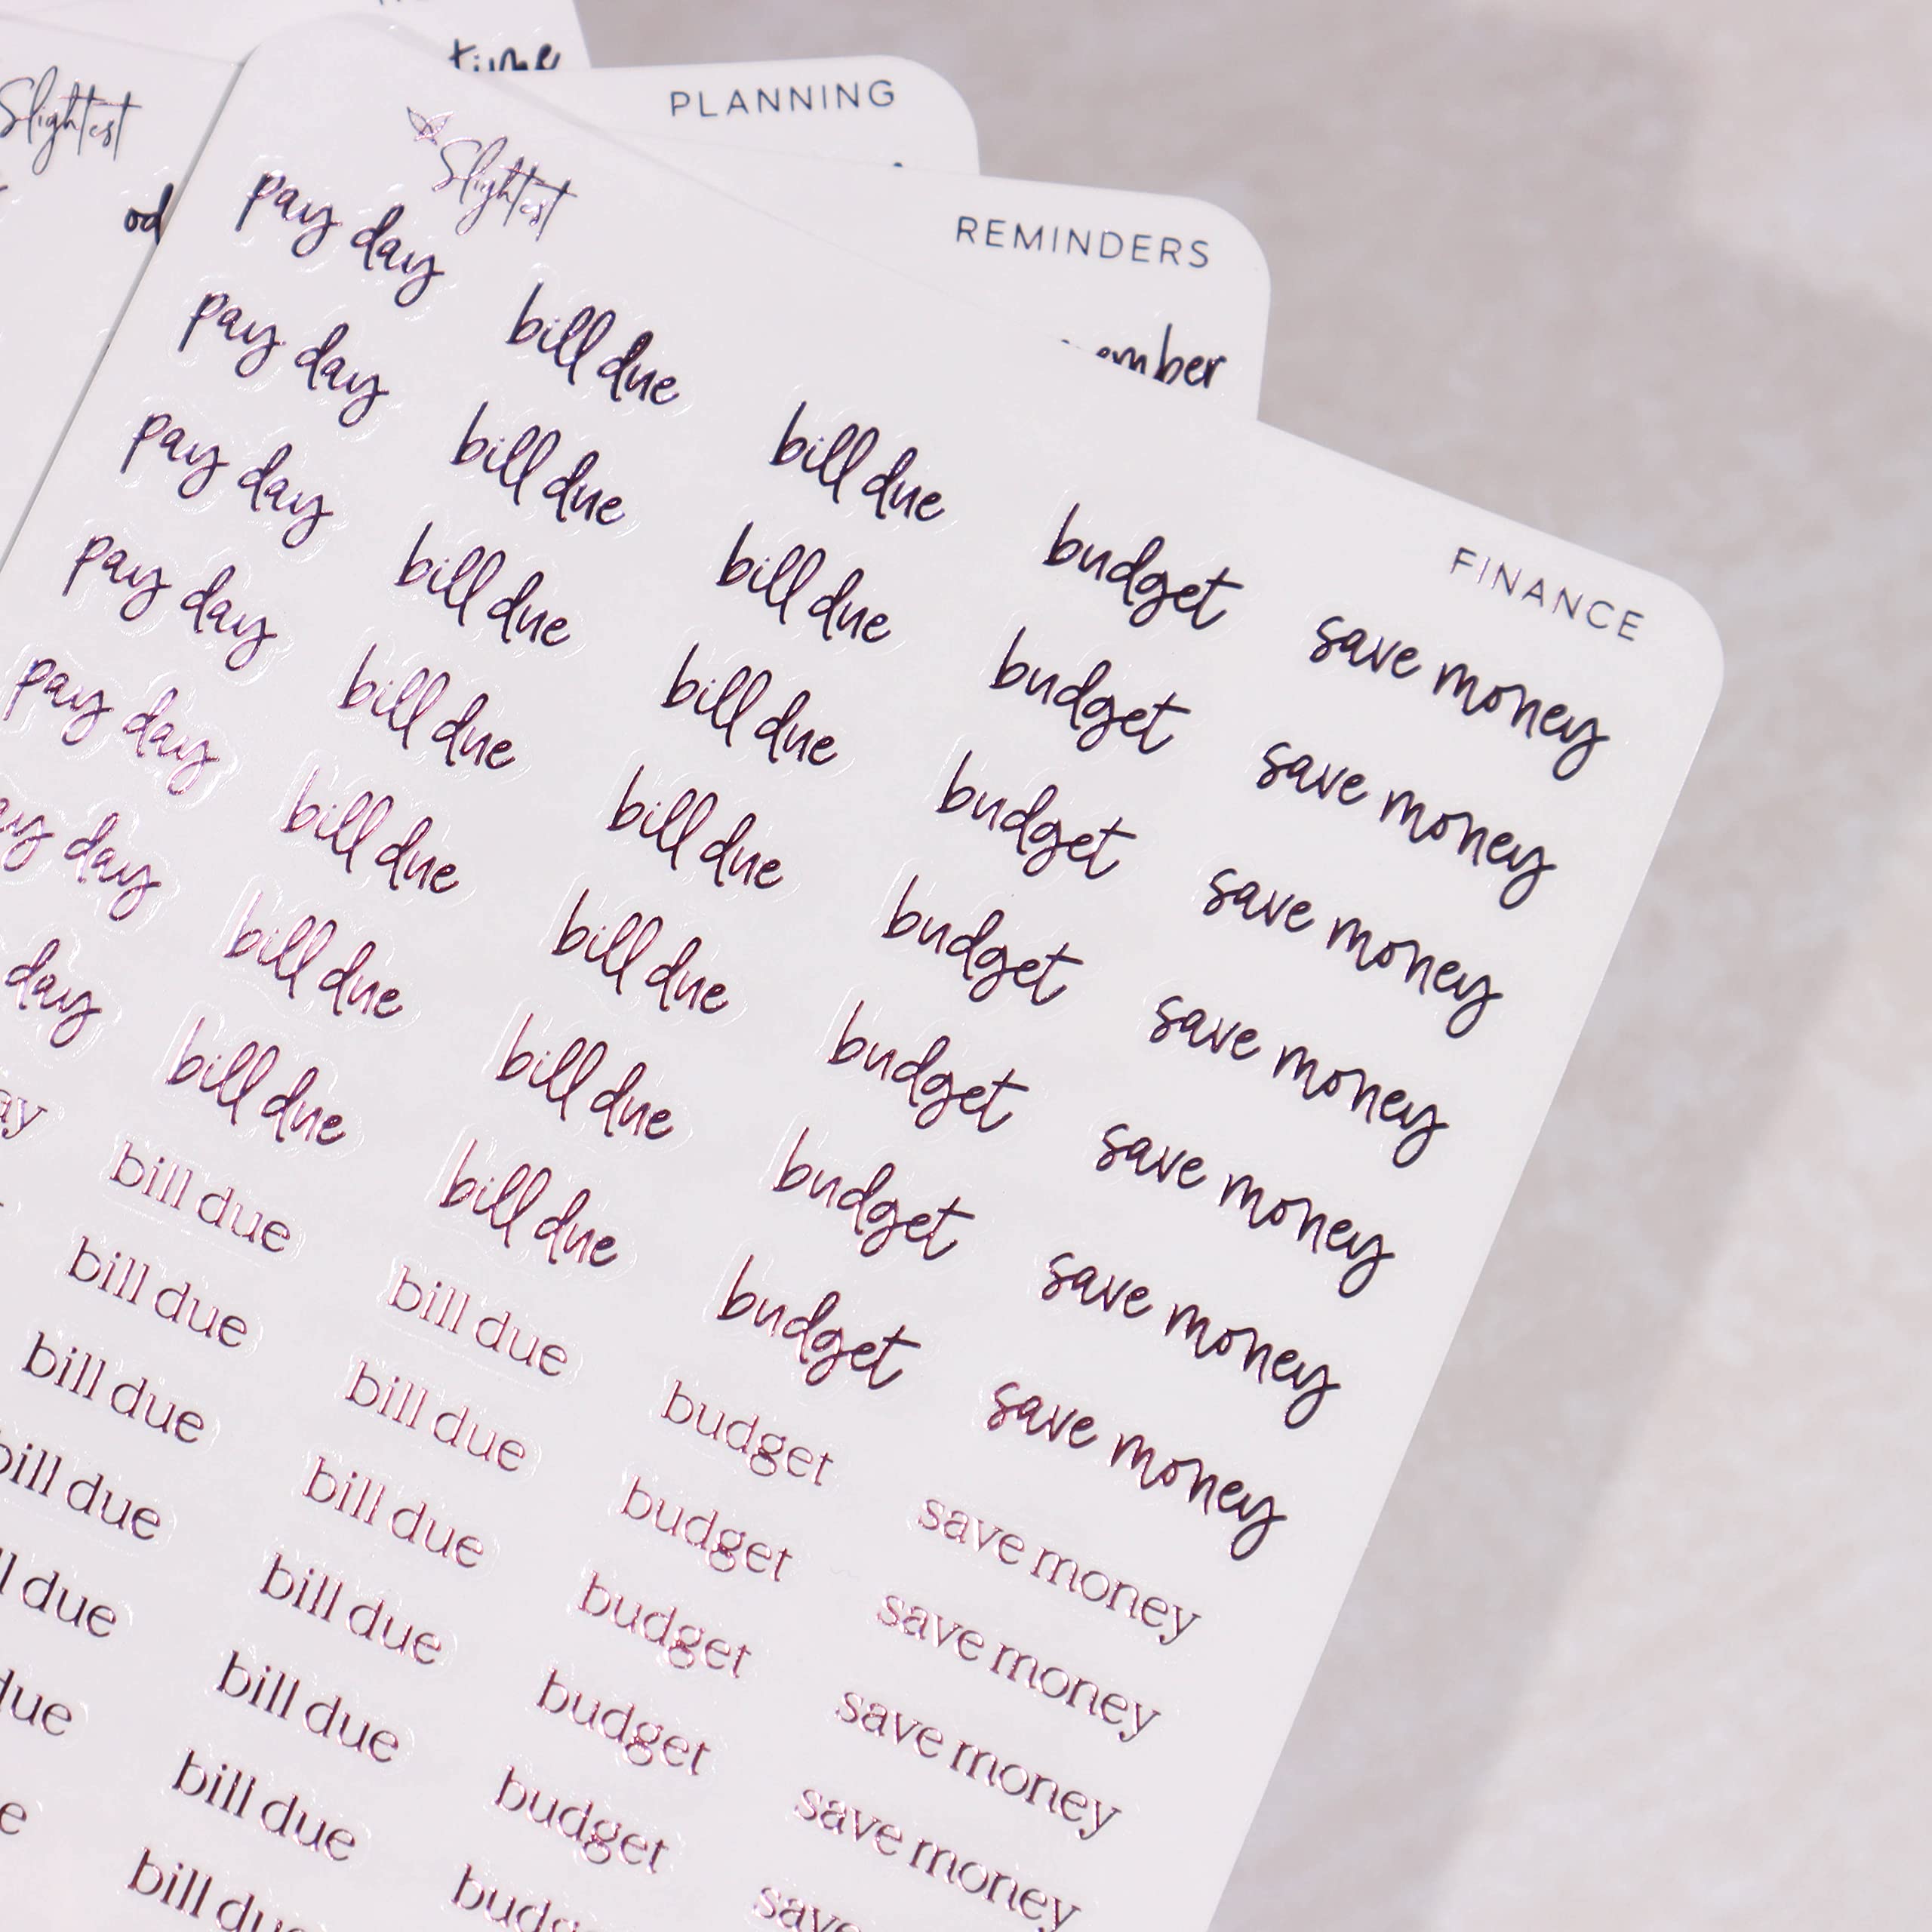 time
PLANNING
Slightest
od
REMINDERS
ember
Slightest
FINANCE
pay day bill due bill due budget save money
pay day bill due bill due budget save money
pay day bill due bill due budget save money
pay day bill due bill due budget save money
pay day bill due bill due budget save money
ay day bill due bill due budget save money
day bill due bill due budget save money
ay bill due bill due budget save money
bill due bill due budget save money
bill due bill due budget save money
bill due bill due budget save money
l due bill due budget save
due bill due budg
e bill du